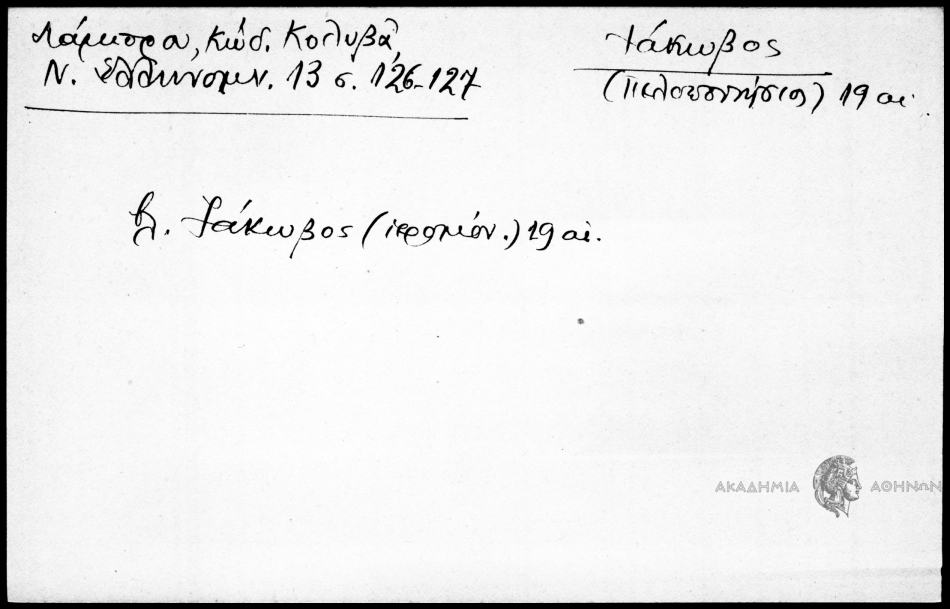 Λάμπρου, Κώδ. Κολυβᾶ,
Ν. Ἑλληνομν. 13 σ. 126-127
Ἰάκωβος
(Πελοποννήσιος) 19 αἰ.
βλ. Ἰάκωβος (ἱερομόν.) 19 αἰ.
ΑΚΑΔΗΜΙΑ ΑΘΗΝΩΝ